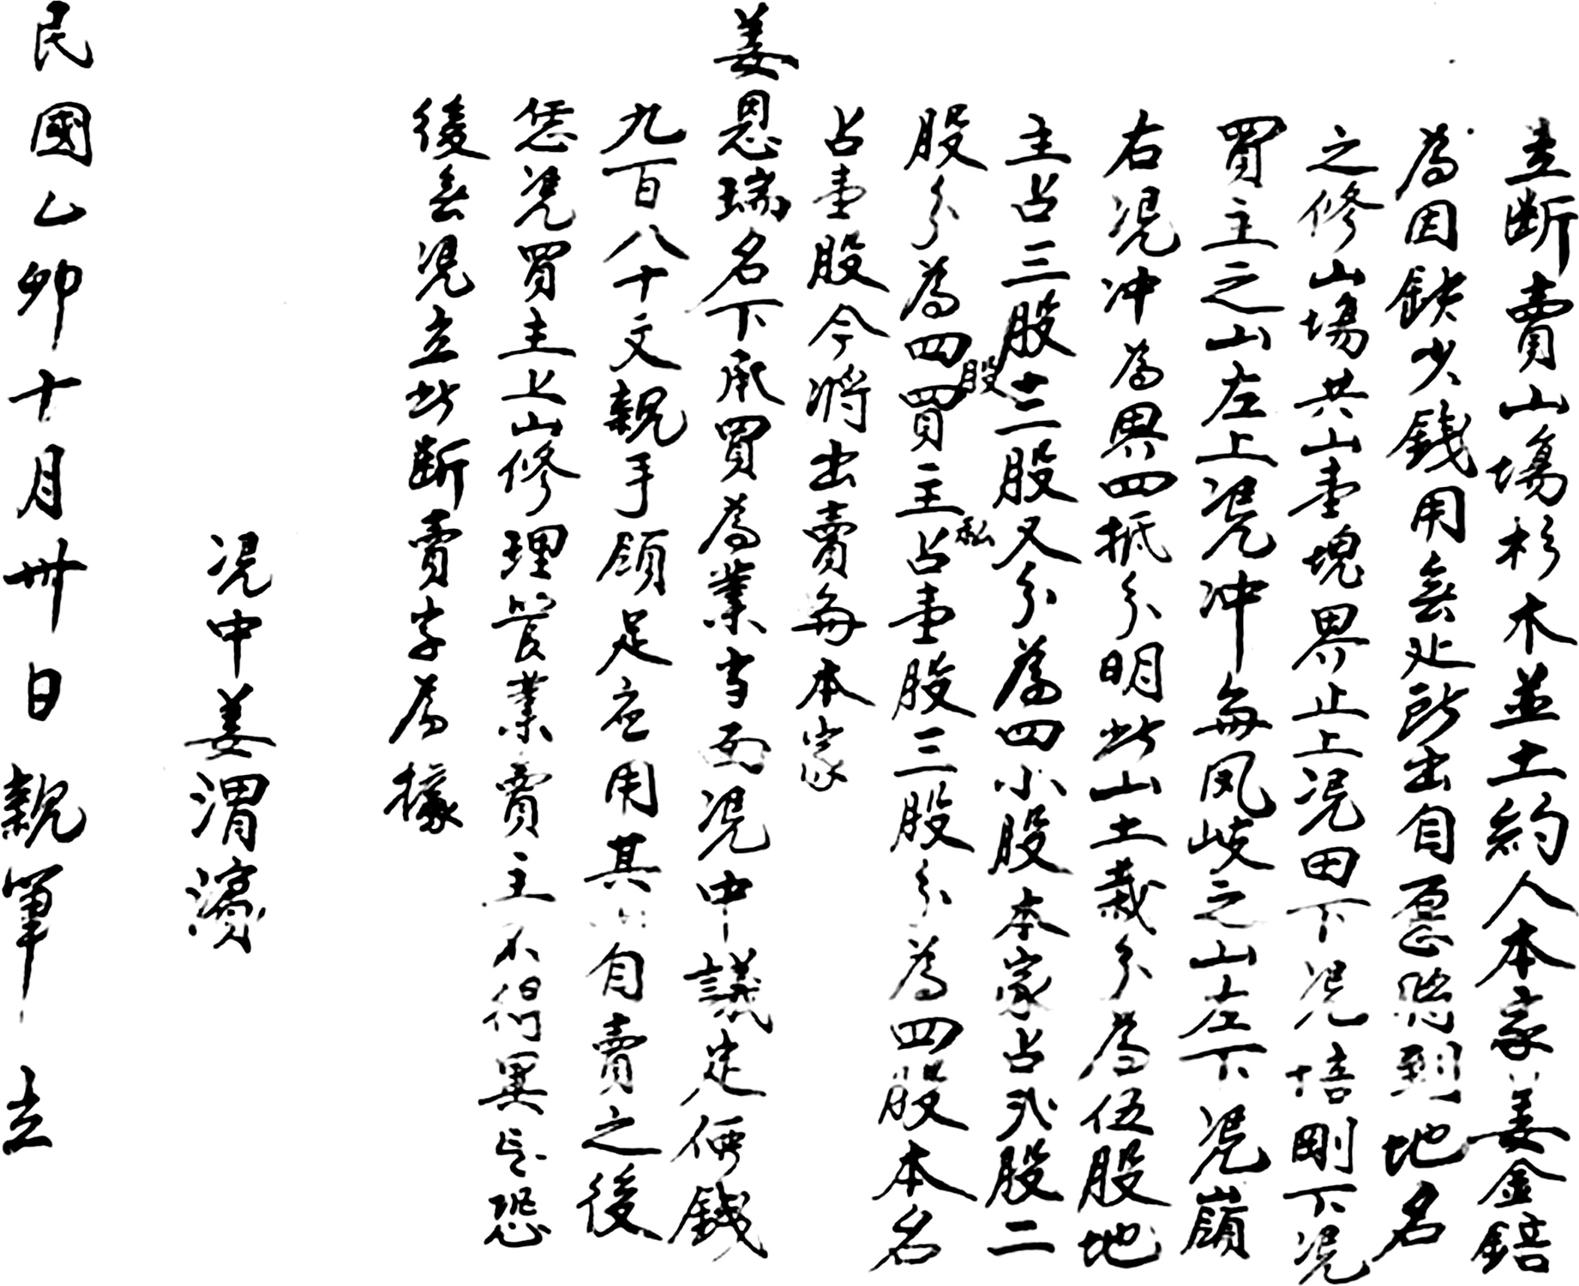 立斷賣山塲杉木並土約人本家姜金錇
為因缺少錢用無处所出自愿將到地名
之修山塲共山壹塊界止上凭田下凭培剛下凭
買主之山左上凭冲每凤岐之山左下凭嶺
右凭冲為界四抵分明此山土栽分為伍股地
主占三股十二股又分為四小股本家占弍股二
股分為四股買主私占壹股三股分為四股本名
占壹股今將出賣每本家
姜恩瑞名下承買為業当面凭中議定價錢
九百八十文親手領足应用其自賣之後
恁凭買主上山修理管業賣主不得異言恐
後無凭立此斷賣字為據
凭中姜渭濱
民國乙卯十月卅日親筆立